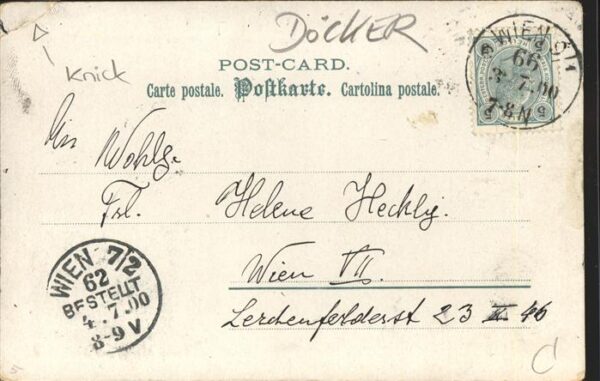 DÖCKER
Knick
POST-CARD.
Carte postale. Postkarte. Cartolina postale.
WIEN
66
3. 7. 00
7-8 N
5 5
An Wohlg.
Frl. Helene Heckly.
Wien VII.
Lerchenfelderst 23 II 46
WIEN 7/2
62
BESTELLT
4. 7. 00
8-9 V